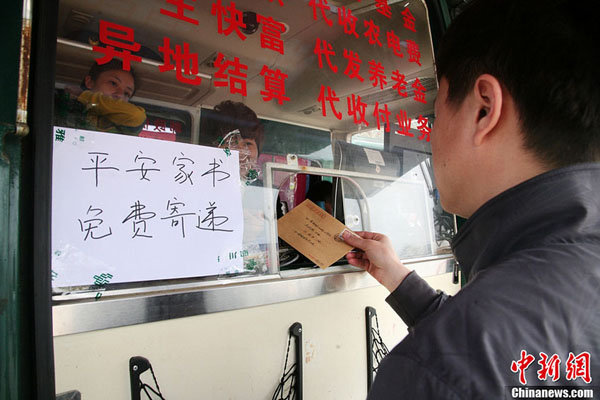 异地结算
代收农电费
代发养老金
代收付业务
平安家书
免费寄递
中新网
Chinanews.com